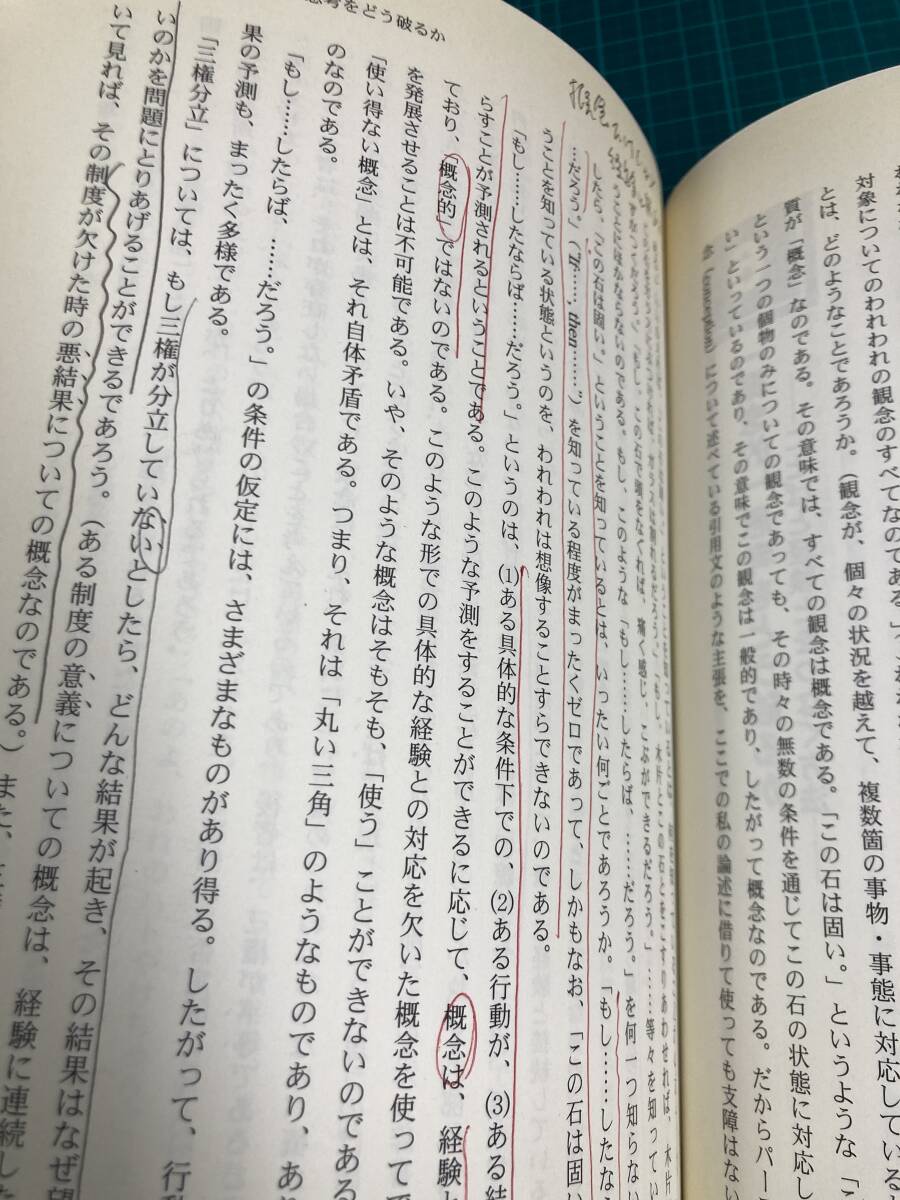 対象についてのわれわれの観念のすべてなのである」
とは、どのようなことであろうか。（観念が、個々の状況を越えて、複数箇の事物・事態に対応している
質が「概念」なのである。その意味では、すべての観念は概念である。「この石は固い。」というような「
という一つの個物のみについての観念であっても、その時々の無数の条件を通じてこの石の状態に対応し
い」といっているのであり、その意味でこの観念は一般的であり、したがって概念なのである。だからパー
念（conception）について述べている引用文のような主張を、ここでの私の論述に借りて使っても支障はない
思考をどう破るか
ガラスは割れるだろう」「もし、木片とこの石とをこすりあわせれば、木片
「もし、この石で頭をなぐれば、痛く感じ、こぶができるだろう。」……等々を知ってい
うことにほかならないのである。もし、このような「もし……したらば、……だろう。」を何一つ知らない
したら、「この石は固い。」ということを知っているとは、いったい何ごとであろうか。「もし……したなら
…だろう。」（"If……, then……"）を知っている程度がまったくゼロであって、しかもなお、「この石は固い
うことを知っている状態というのを、われわれは想像することすらできないのである。
「もし……したならば……だろう。」というのは、⑴ある具体的な条件下での、⑵ある行動が、⑶ある結
らすことが予測されるということである。このような予測をすることができるに応じて、概念は、経験と
ており、「概念的」ではないのである。このような形での具体的な経験との対応を欠いた概念を使って
を発展させることは不可能である。いや、そのような概念はそもそも、「使う」ことができないのである
「使い得ない概念」とは、それ自体矛盾である。つまり、それは「丸い三角」のようなものであり、あり
のなのである。
「もし……したらば、……だろう。」の条件の仮定には、さまざまなものがあり得る。したがって、行動
果の予測も、まったく多様である。
「三権分立」については、もし三権が分立していないとしたら、どんな結果が起き、その結果はなぜ望
いのかを問題にとりあげることができるであろう。（ある制度の意義についての概念は、経験に連続した
いて見れば、その制度が欠けた時の悪結果についての概念なのである。）また、